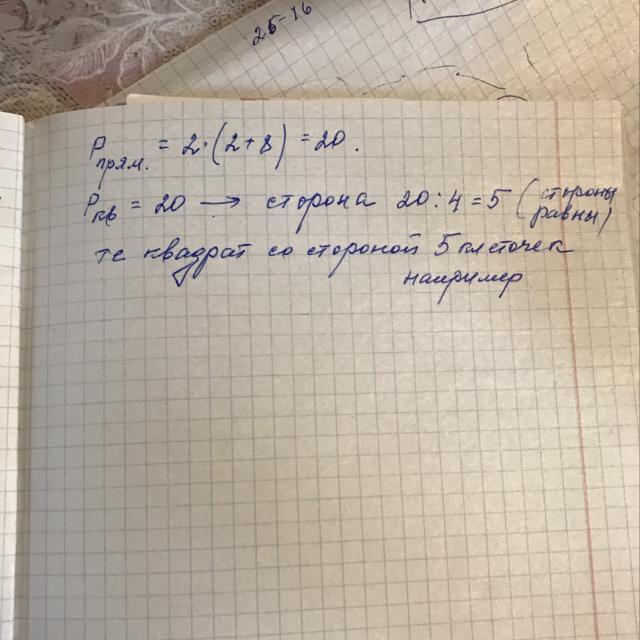 25-16
P прям. = 2·(2+8) = 20.
P кв = 20 → сторона 20:4=5 (стороны равны)
те квадрат со стороной 5 клеточек
например